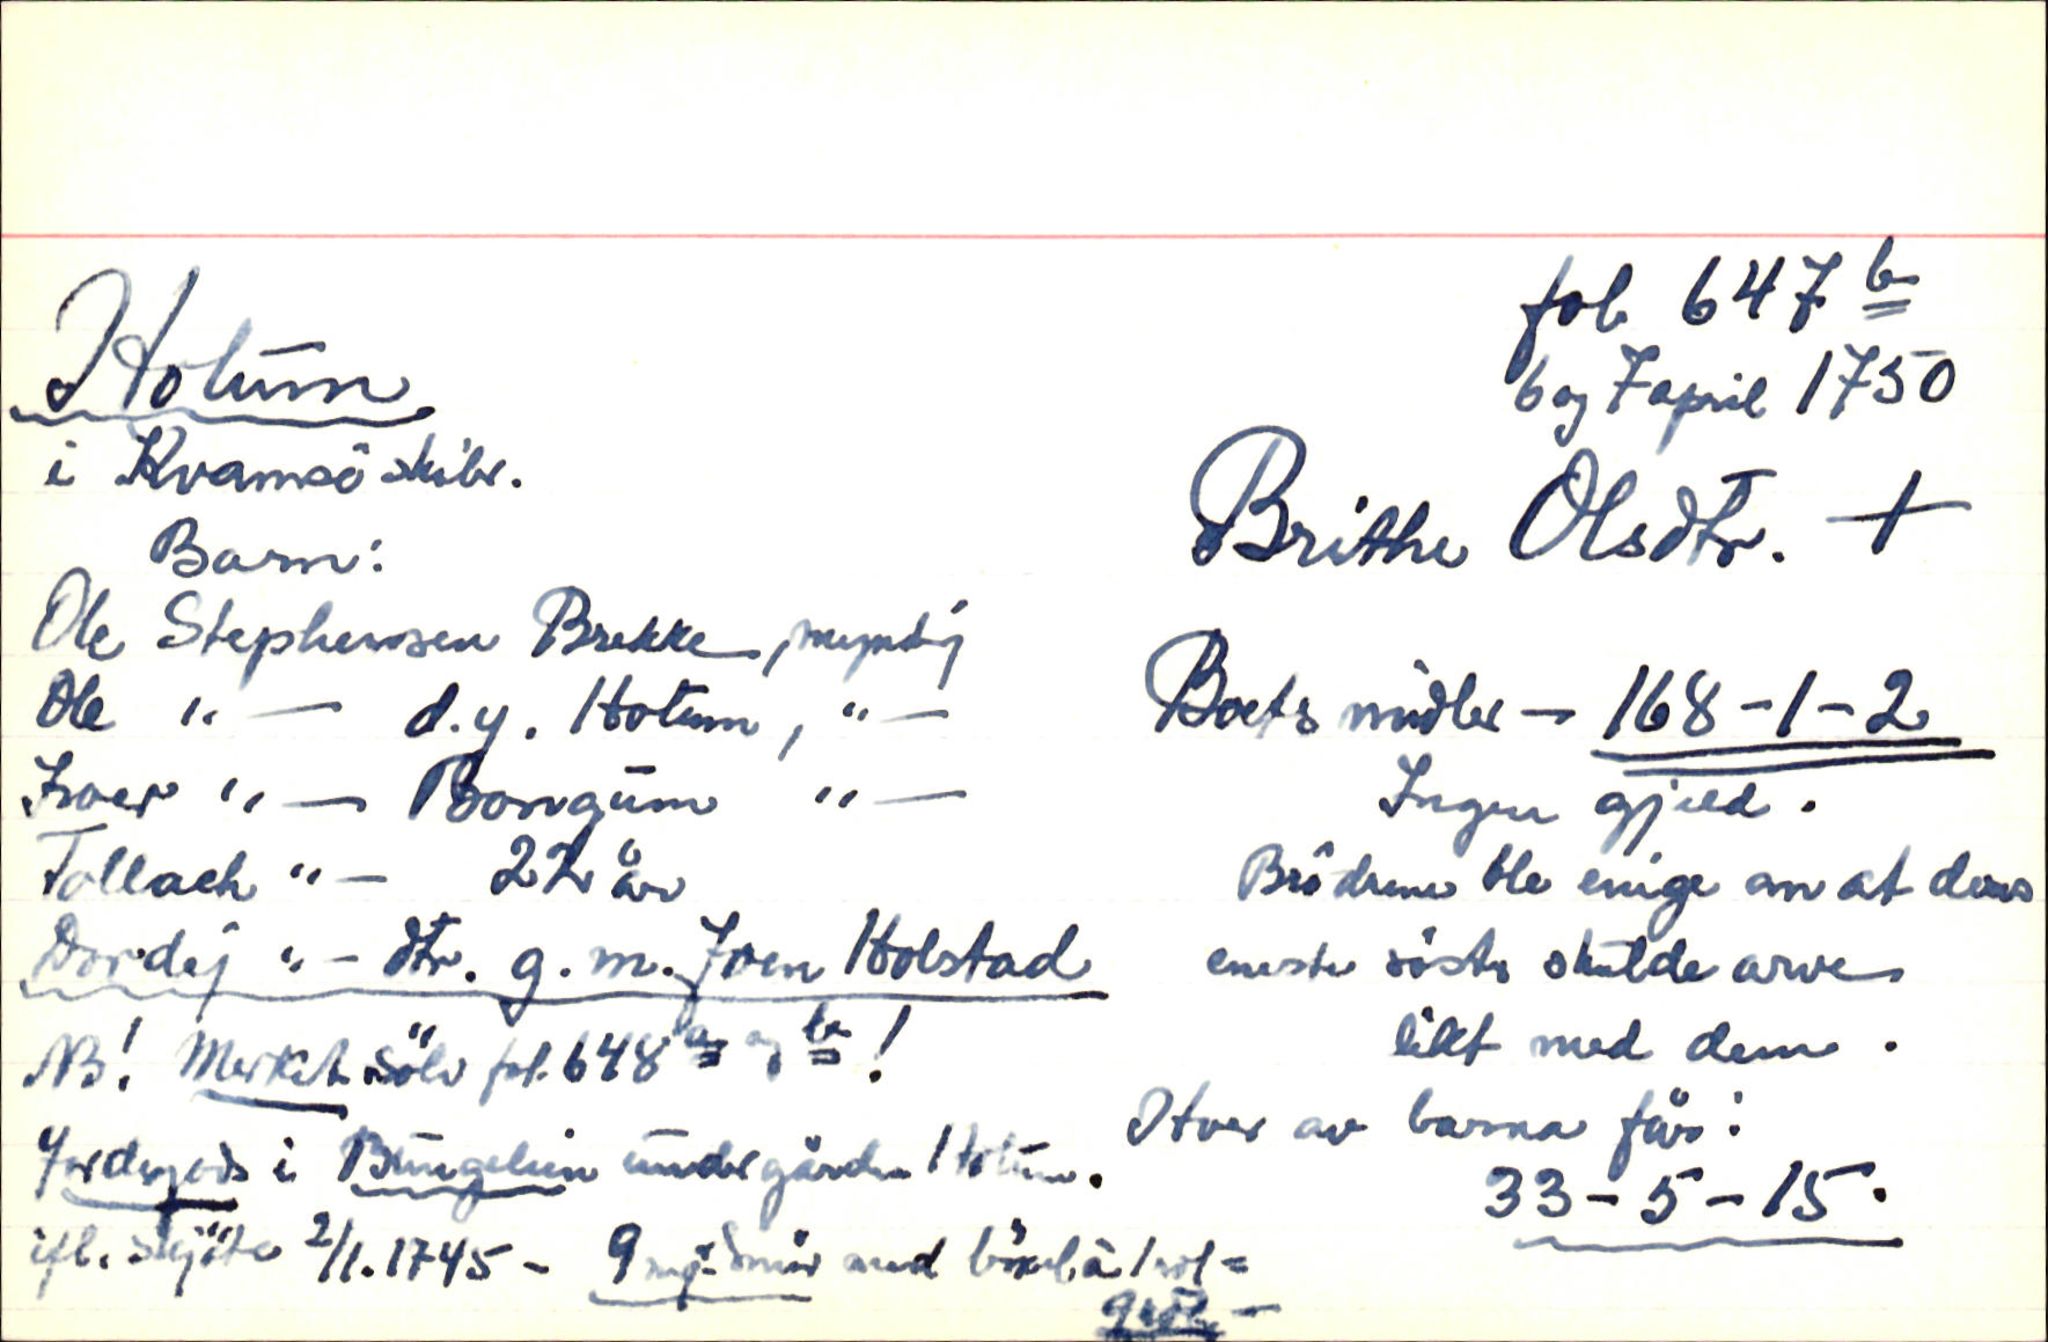 fol. 647 b
6 og 7 april 1750
Hotum
i Kvamsö skibr.
Brithe Olsdtr. +
Barn:
Ole Stephensen Brekke, myndig
Ole " — d.y. Hotum, " —
Iver " — Borgum " —
Tollach " — 22 år
Dordej " — dtr. g. m. Joen Holstad
NB! Merket Sölv fol. 648 a og b!
Jordegods i Bungelien under gården Hotum.
ifl. skjöte 2/1. 1745 - 9 mg. smör med böxel à 1 rdl =
9 rdl. —
Boets midler — 168-1-2
Ingen gjeld.
Brödrene ble enige om at deres
eneste söster skulde arve
likt med dem.
Hver av barna får:
33-5-15.